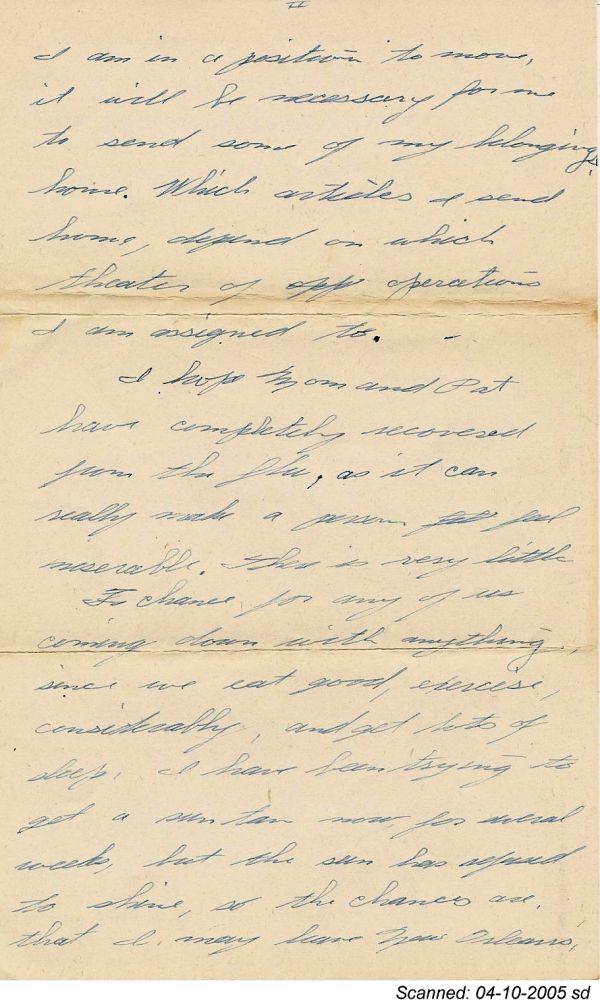 II
I am in a position to move,
it will be necessary for me
to send some of my belongings
home. Which articles I send
home, depend on which
theater of opp operations
I am assigned to. -
I hope Mom and Pat
have completely recovered
from the flu, as it can
really make a person feel
miserable. There is very little
chance for any of us
coming down with anything,
since we eat good, exercise,
considerably, and get lots of
sleep. I have been trying to
get a sun tan now, for several
weeks, but the sun has refused
to shine, so the chances are,
that I may leave New Orleans,
Scanned: 04-10-2005 sd